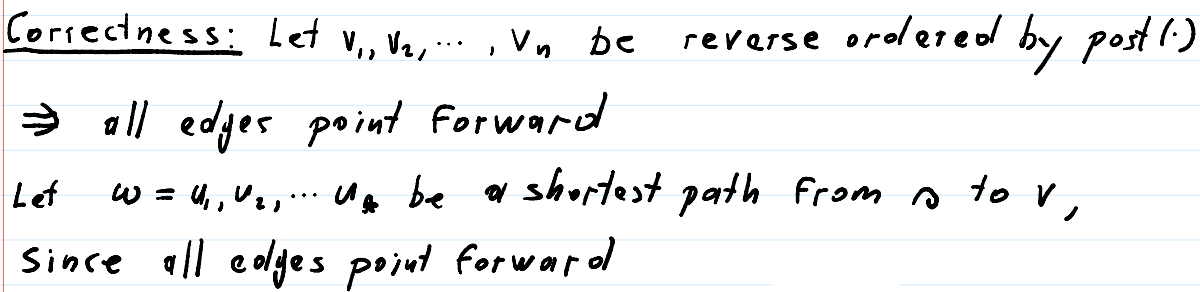 Correctness: Let v₁, v₂, ⋯, vₙ be reverse ordered by post(·)
⇒ all edges point forward
Let ω = u₁, u₂, ⋯ uₖ be a shortest path from s to v,
Since all edges point forward